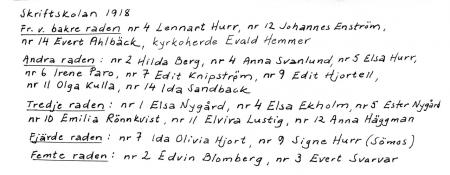 Skriftskolan 1918
Fr. v. bakre raden nr 4 Lennart Hurr, nr 12 Johannes Enström,
nr 14 Evert Ahlbäck, kyrkoherde Evald Hemmer
Andra raden: nr 2 Hilda Berg, nr 4 Anna Svanlund, nr 5 Elsa Hurr,
nr 6 Irene Paro, nr 7 Edit Knipström, nr 9 Edit Hjortell,
nr 11 Olga Kulla, nr 14 Ida Sandback
Tredje raden: nr 1 Elsa Nygård, nr 4 Elsa Ekholm, nr 5 Ester Nygård
nr 10 Emilia Rönnkvist, nr 11 Elvira Lustig, nr 12 Anna Häggman
Fjärde raden: nr 7 Ida Olivia Hjort, nr 9 Signe Hurr (Sömos)
Femte raden: nr 2 Edvin Blomberg, nr 3 Evert Svarvar